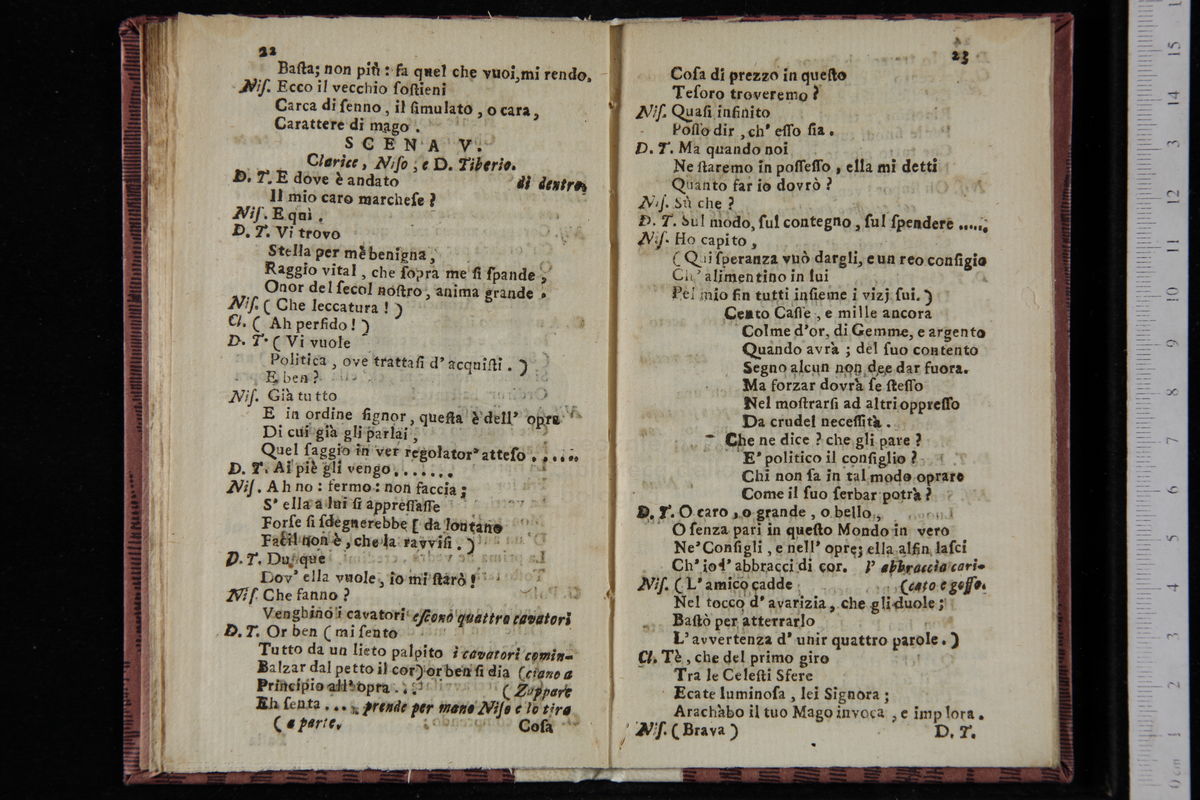 22
Baſta; non più: fa quel che vuoi, mi rendo.
Niſ. Ecco il vecchio ſoſtieni
Carca di ſenno, il ſimulato, o cara,
Carattere di mago.
SCENA V.
Clarice, Niſo, e D. Tiberio.
D. T. E dove è andato di dentro.
Il mio caro marcheſe?
Niſ. E quì.
D. T. Vi trovo
Stella per mè benigna,
Raggio vital, che ſopra me ſi ſpande,
Onor del ſecol noſtro, anima grande.
Niſ. (Che leccatura!)
Cl. (Ah perfido!)
D. T. (Vi vuole
Politica, ove trattaſi d' acquiſti.)
E ben?
Niſ. Già tutto
E in ordine ſignor, queſta è dell' opra
Di cui già gli parlai,
Quel ſaggio in ver regolator' atteſo......
D. T. Ai piè gli vengo.......
Niſ. Ah no: fermo: non faccia;
S' ella a lui ſi appreſſaſſe
Forſe ſi ſdegnerebbe [da lontano
Facil non è, che la ravviſi.)
D. T. Dunque
Dov' ella vuole, io mi ſtarò!
Niſ. Che fanno?
Venghino i cavatori eſcono quattro cavatori
D. T. Or ben (mi ſento
Tutto da un lieto palpito i cavatori comin-
Balzar dal petto il cor) or ben ſi dia (ciano a
Principio all' opra... (Zappare
Eh ſenta.... prende per mano Niſo e lo tira
(a parte. Coſa
23
Coſa di prezzo in queſto
Teſoro troveremo?
Niſ. Quaſi infinito
Poſſo dir, ch' eſſo ſia.
D. T. Ma quando noi
Ne ſtaremo in poſſeſſo, ella mi detti
Quanto far io dovrò?
Niſ. Sù che?
D. T. Sul modo, ſul contegno, ſul ſpendere......
Niſ. Ho capito,
(Qui ſperanza vuò dargli, e un reo conſigio
Ch' alimentino in lui
Pel mio fin tutti inſieme i vizj ſui.)
Cento Caſſe, e mille ancora
Colme d'or, di Gemme, e argento
Quando avrà; del ſuo contento
Segno alcun non dee dar fuora.
Ma forzar dovrà ſe ſteſſo
Nel moſtrarſi ad altri oppreſſo
Da crudel neceſſità.
Che ne dice? che gli pare?
E' politico il conſiglio?
Chi non ſa in tal modo oprare
Come il ſuo ſerbar potrà?
D. T. O caro, o grande, o bello,
O ſenza pari in queſto Mondo in vero
Ne' Conſigli, e nell' opre; ella alfin laſci
Ch' io l' abbracci di cor. l' abbraccia cari-
Niſ. (L' amico cadde (cato e goffo.
Nel tocco d' avarizia, che gli duole;
Baſtò per atterrarlo
L' avvertenza d' unir quattro parole.)
Cl. Tè, che del primo giro
Tra le Celeſti Sfere
Ecate luminoſa, ſei Signora;
Arachàbo il tuo Mago invoca, e implora.
Niſ. (Brava) D. T.